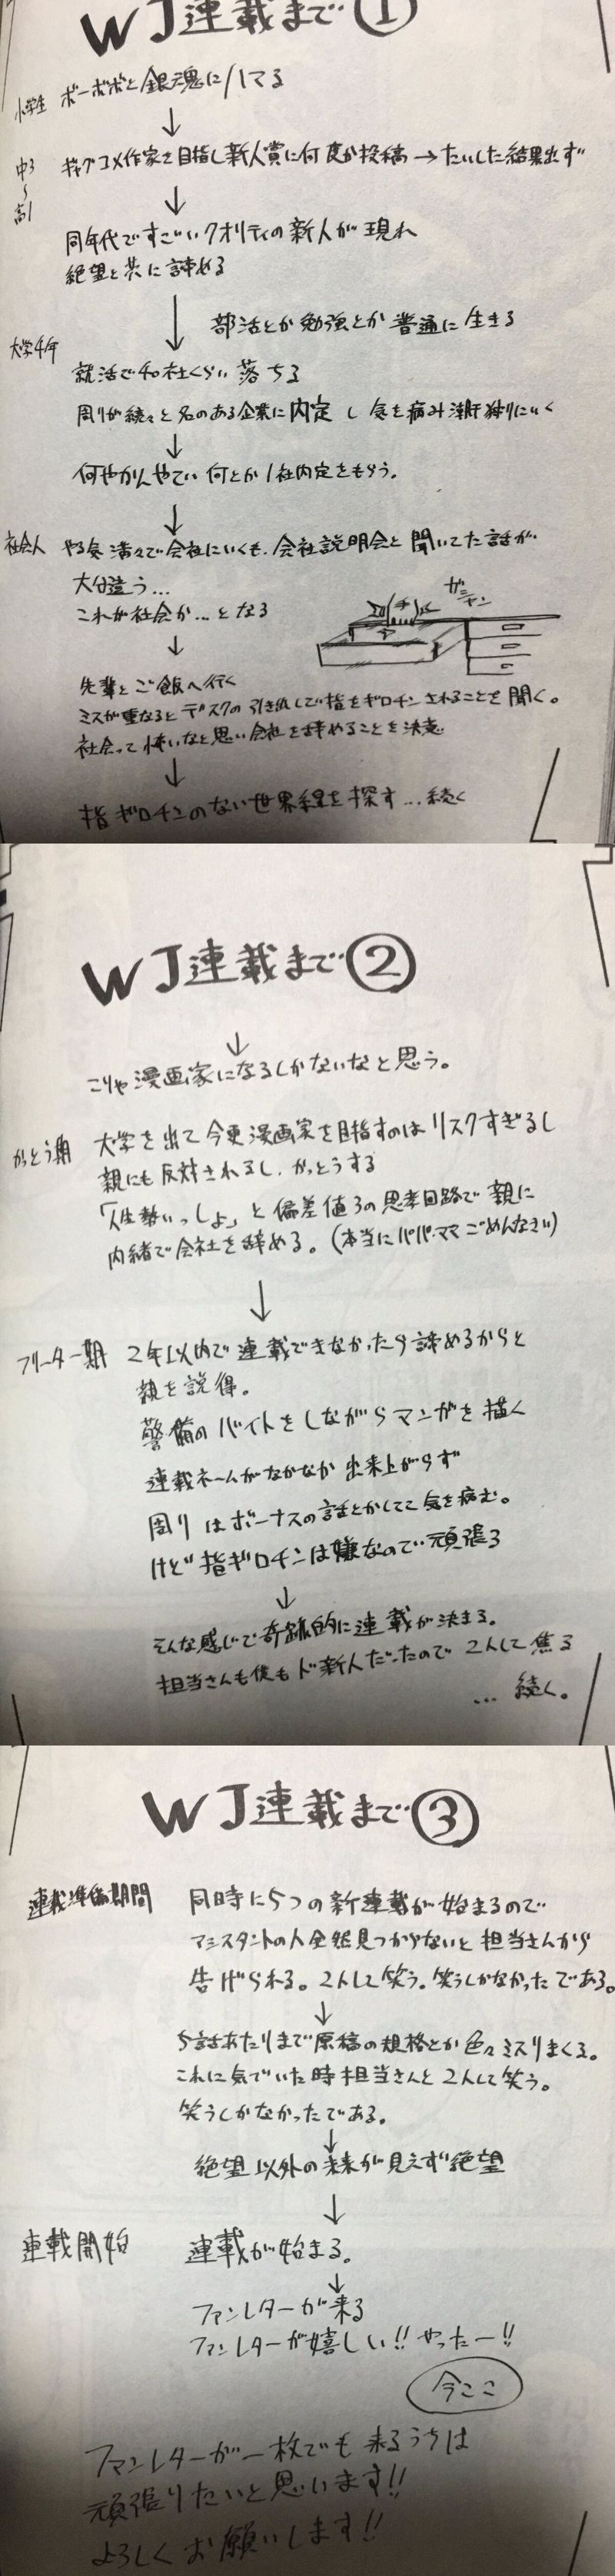 WJ連載まで①
小学生 ボーボボと銀魂にハマる
↓
中3〜高1 ギャグコメ作家を目指し新人賞に何度か投稿→たいした結果出ず
↓
同年代ですごいクオリティの新人が現れ
絶望と共に諦める
↓ 部活とか勉強とか普通に生きる
大学4年 就活で40社くらい落ちる
周りが続々と名のある企業に内定し気を病み潮干狩りにいく
↓
何やかんやでい何とか1社内定をもらう。
↓
社会人 やる気満々で会社にいくも、会社説明会と聞いてた話が
大分違う…
これが社会か…となる
ガシャン
↓
先輩とご飯へ行く
ミスが重なるとデスクの引き出しで指をギロチンされることを聞く。
社会って怖いなと思い会社を辞めることを決意
↓
指ギロチンのない世界線を探す…続く
WJ連載まで②
↓
こりゃ漫画家になるしかないなと思う。
かっとう期 大学を出て今更漫画家を目指すのはリスクすぎるし
親にも反対されるし、かっとうする
「人生勢いっしょ」と偏差値3の思考回路で親に
内緒で会社を辞める。(本当にパパ・ママごめんなさい)
↓
フリーター期 2年以内で連載できなかったら諦めるからと
親を説得。
警備のバイトをしながらマンガを描く
連載ネームがなかなか出来上がらず
周りはボーナスの話とかしてて気を病む。
けど指ギロチンは嫌なので頑張る
↓
そんな感じで奇跡的に連載が決まる。
担当さんも僕もド新人だったので2人して焦る
…続く。
WJ連載まで③
連載準備期間 同時に5つの新連載が始まるので
アシスタントの人全然見つからないと担当さんから
告げられる。2人して笑う。笑うしかなかったである。
↓
5話あたりまで原稿の規格とか色々ミスりまくる。
これに気づいた時担当さんと2人して笑う。
笑うしかなかったである。
↓
絶望以外の未来が見えず絶望
↓
連載開始 連載が始まる。
↓
ファンレターが来る
ファンレターが嬉しい!!やったー!!
今ここ
ファンレターが一枚でも来るうちは
頑張りたいと思います!!
よろしくお願いします!!